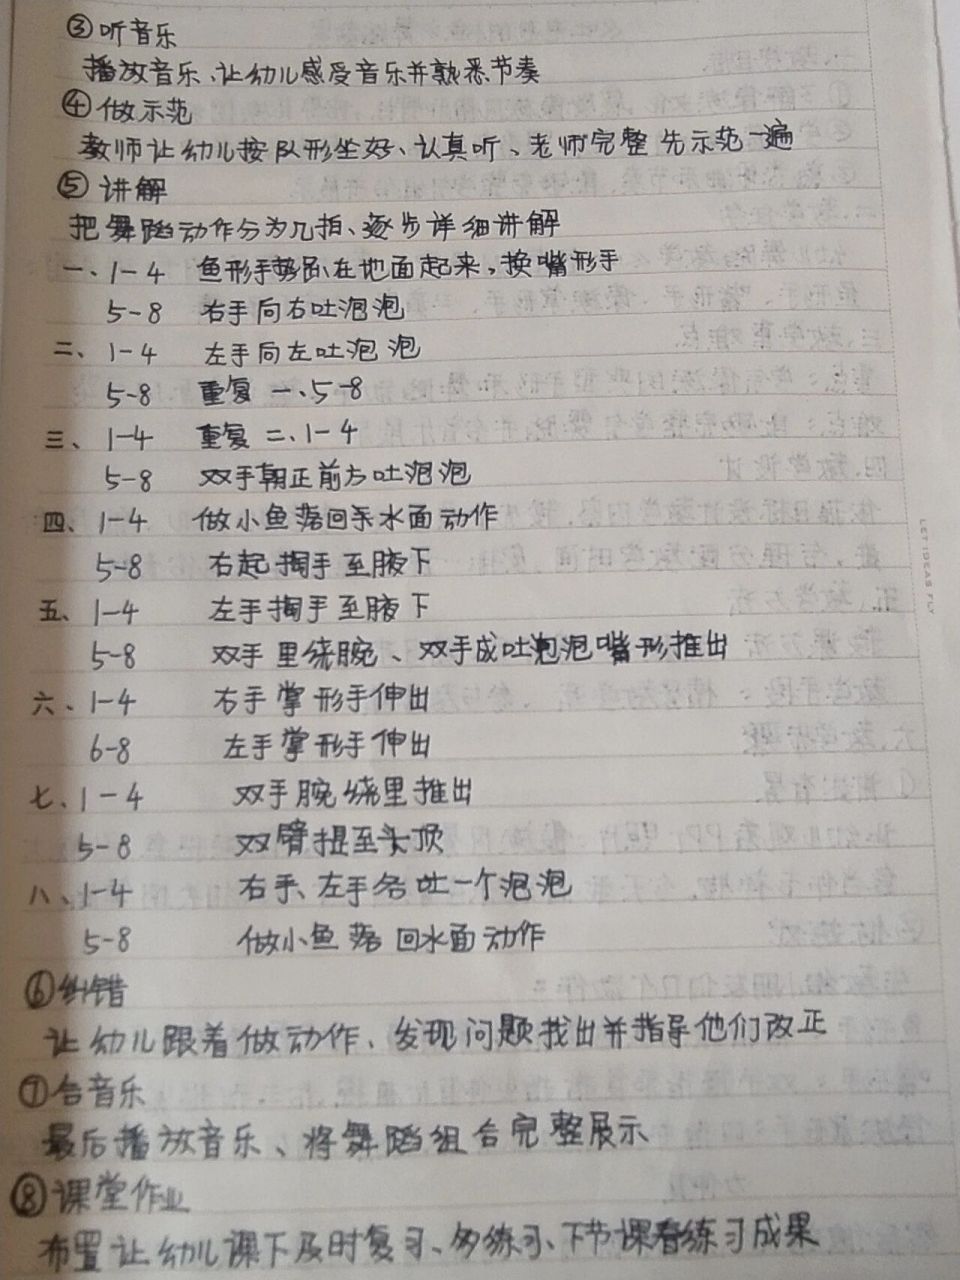 ③听音乐
播放音乐、让幼儿感受音乐并熟悉节奏
④做示范
教师让幼儿按队形坐好、认真听、老师完整先示范一遍
⑤讲解
把舞蹈动作分为几拍、逐步详细讲解
一、1-4 鱼形手势趴在地面起来,换嘴形手
5-8 右手向右吐泡泡
二、1-4 左手向左吐泡泡
5-8 重复一、5-8
三、1-4 重复二、1-4
5-8 双手朝正前方吐泡泡
四、1-4 做小鱼落回手水面动作
5-8 右起掏手至腋下
五、1-4 左手掏手至腋下
5-8 双手里绕腕、双手成吐泡泡嘴形推出
六、1-4 右手掌形手伸出
6-8 左手掌形手伸出
七、1-4 双手腕绕里推出
5-8 双臂提至头顶
八、1-4 右手、左手各吐一个泡泡
5-8 做小鱼落回水面动作
⑥纠错
让幼儿跟着做动作、发现问题找出并指导他们改正
⑦合音乐
最后播放音乐、将舞蹈组合完整展示
⑧课堂作业
布置让幼儿课下及时复习、多练习、下节课看练习成果